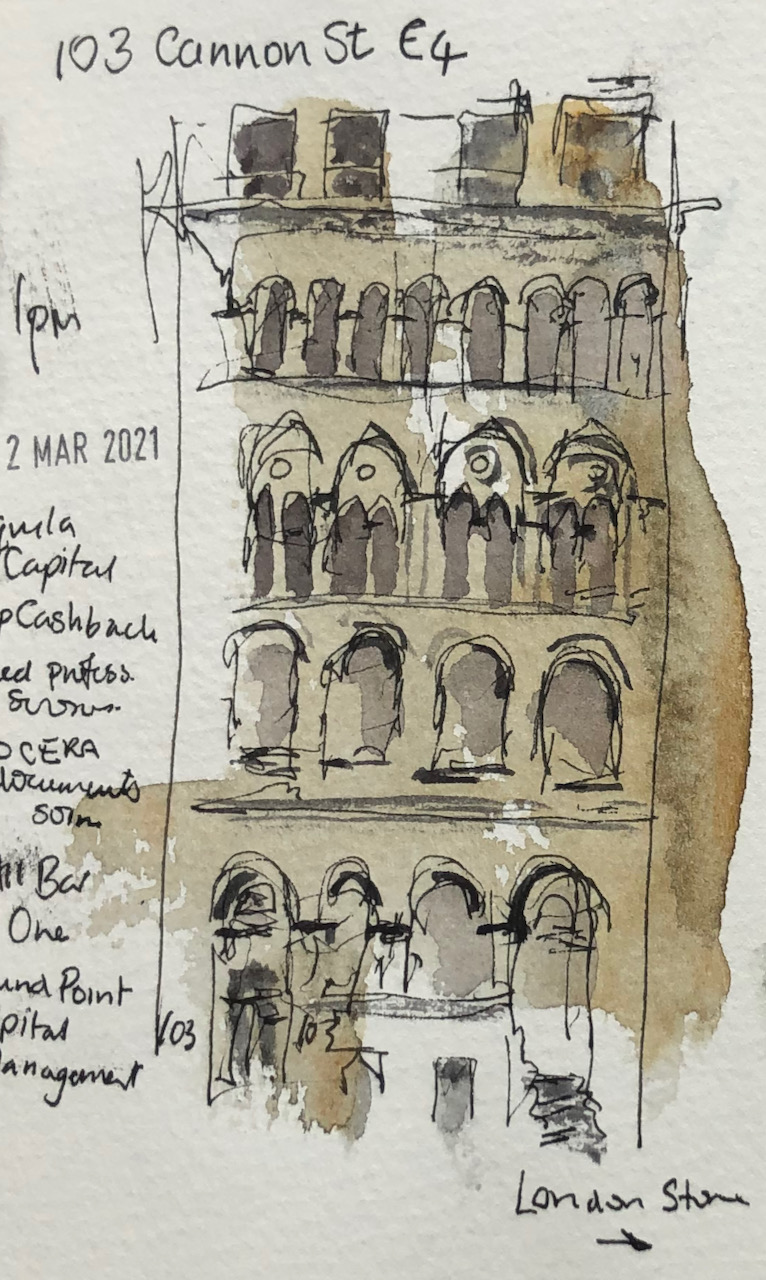 103 Cannon St EC4
1pm
2 MAR 2021
Capital
pCashback
ed profess.
OCERA
documents
Bar
One
und Point
pital
anagement
103
103
London Stone